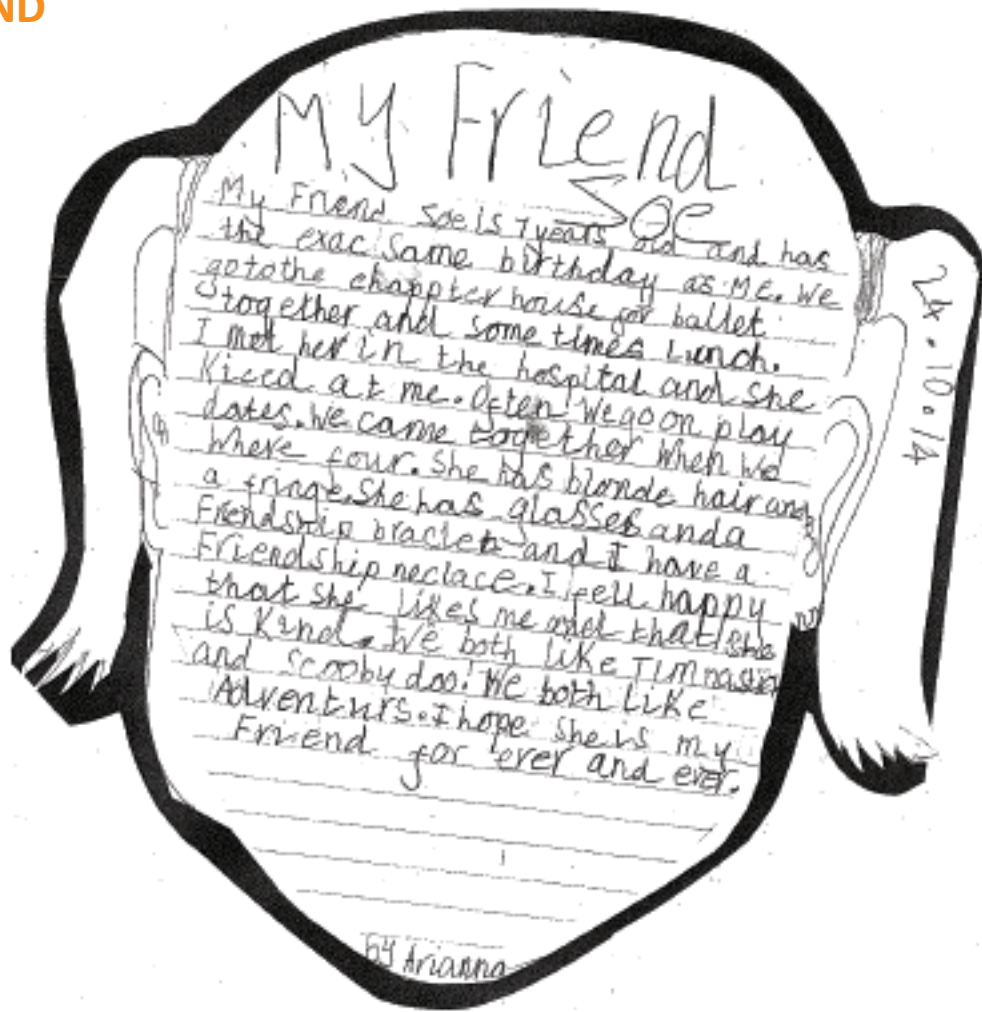 ND
My Friend
Soe
My Friend Soe is 7 years old and has
the exac same birthday as Me. We
go to the chappter house for ballet
together and some times Lunch.
I met her in the hospital and she
Kiccd at me. Often we go on play
dates. We came together when we
where four. She has blonde hair and
a fringe. She has glasses and a
Friendship braclet and I have a
Friendship neclace. I feell happy
that she likes me and that she
is Kind. We both like
and scooby doo! We both like
Adventurs. I hope she is my
Friend for ever and ever.
by Arianna
24.10.14